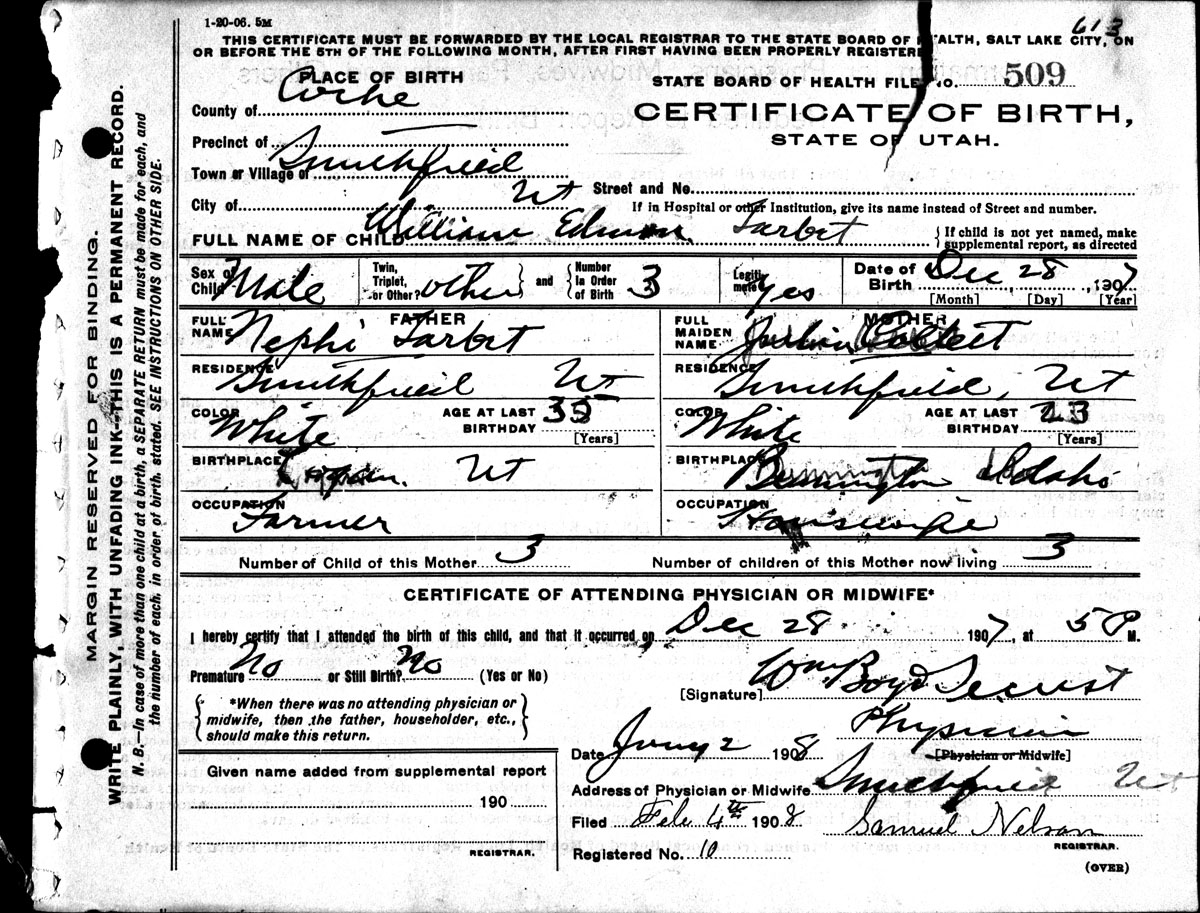 1-20-06. 5M
613
THIS CERTIFICATE MUST BE FORWARDED BY THE LOCAL REGISTRAR TO THE STATE BOARD OF HEALTH, SALT LAKE CITY, ON
OR BEFORE THE 5TH OF THE FOLLOWING MONTH, AFTER FIRST HAVING BEEN PROPERLY REGISTERE
PLACE OF BIRTH
STATE BOARD OF HEALTH FILE NO. 509
County of Cache
CERTIFICATE OF BIRTH,
STATE OF UTAH.
Precinct of
Town or Village of Smithfield
Street and No.
City of Ut
If in Hospital or other Institution, give its name instead of Street and number.
FULL NAME OF CHILD William Edmon Tarbet
If child is not yet named, make
supplemental report, as directed
Sex of Child Male
Twin, Triplet, or Other? other and Number In Order of Birth 3
Legitimate? yes
Date of Birth Dec 28, 1907
[Month] [Day] [Year]
FATHER
FULL NAME Nephi Tarbet
RESIDENCE Smithfield Ut
COLOR White
AGE AT LAST BIRTHDAY 35
[Years]
BIRTHPLACE Ut
OCCUPATION Farmer
MOTHER
FULL MAIDEN NAME
RESIDENCE Smithfield, Ut
COLOR White
AGE AT LAST BIRTHDAY 23
[Years]
BIRTHPLACE Bennington Idaho
OCCUPATION Housewife
Number of Child of this Mother 3
Number of children of this Mother now living 3
CERTIFICATE OF ATTENDING PHYSICIAN OR MIDWIFE*
I hereby certify that I attended the birth of this child, and that it occurred on Dec 28 1907, at 5 P M.
Premature No or Still Birth? No (Yes or No)
[Signature] Wm Boyd Secrist
*When there was no attending physician or
midwife, then the father, householder, etc.,
should make this return.
Physician
[Physician or Midwife]
Date Jany 2 1908
Address of Physician or Midwife Smithfield Ut
Given name added from supplemental report
190
REGISTRAR.
Filed Feb 4th 1908
Samuel Nelson
REGISTRAR.
Registered No. 10
(OVER)
MARGIN RESERVED FOR BINDING.
WRITE PLAINLY, WITH UNFADING INK—THIS IS A PERMANENT RECORD.
N. B.—In case of more than one child at a birth, a SEPARATE RETURN must be made for each, and
the number of each, in order of birth, stated. SEE INSTRUCTIONS ON OTHER SIDE.